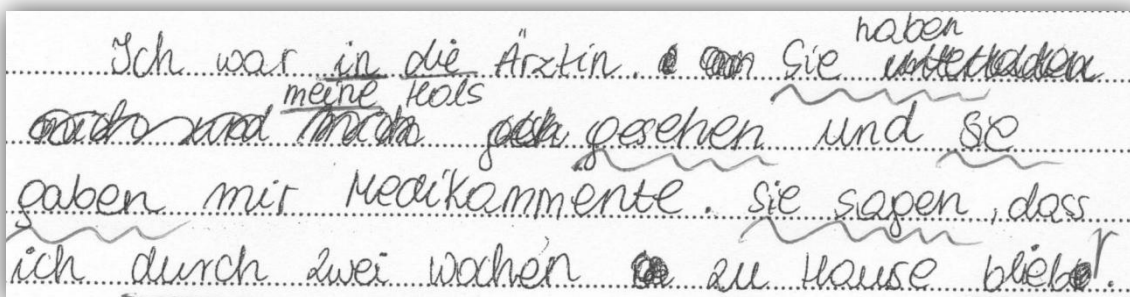 Ich war in die Ärztin. Sie haben
meine Hals gesehen und sie
gaben mir Medikammente. Sie sagen, dass
ich durch zwei wochen zu Hause blieb